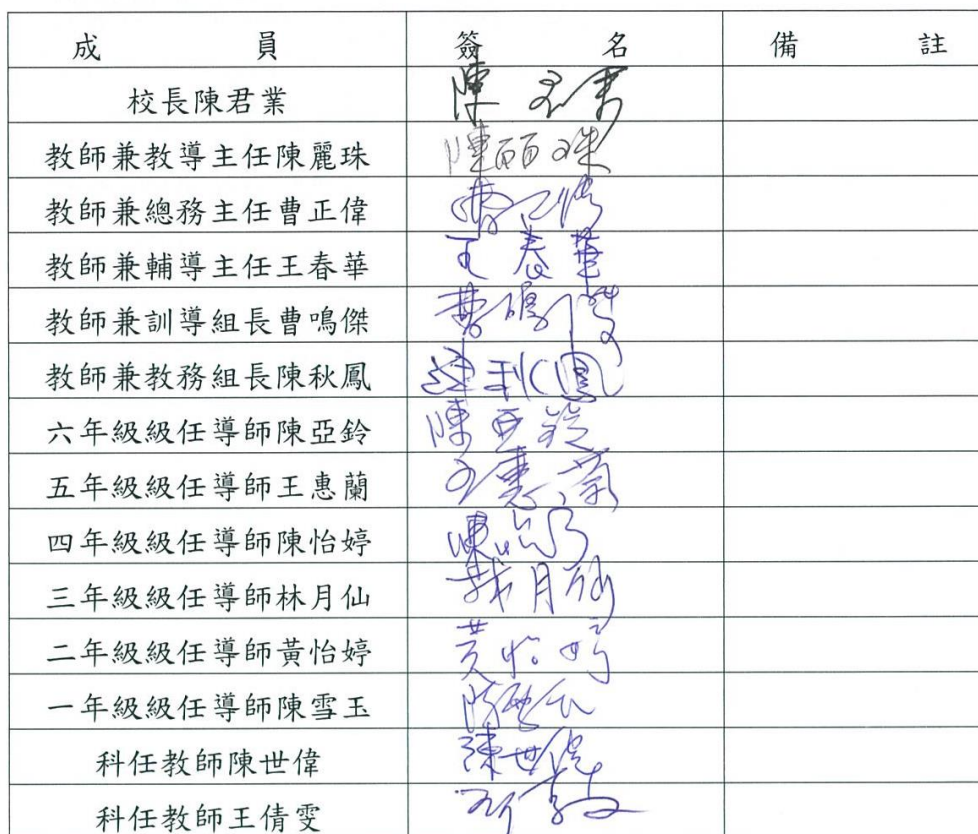 成員 簽名 備註
校長陳君業 陳君業
教師兼教導主任陳麗珠 陳麗珠
教師兼總務主任曹正偉 曹正偉
教師兼輔導主任王春華 王春華
教師兼訓導組長曹鳴傑 曹鳴傑
教師兼教務組長陳秋鳳 陳秋鳳
六年級級任導師陳亞鈴 陳亞鈴
五年級級任導師王惠蘭 王惠蘭
四年級級任導師陳怡婷 陳怡婷
三年級級任導師林月仙 林月仙
二年級級任導師黃怡婷 黃怡婷
一年級級任導師陳雪玉
科任教師陳世偉 陳世偉
科任教師王倩雯